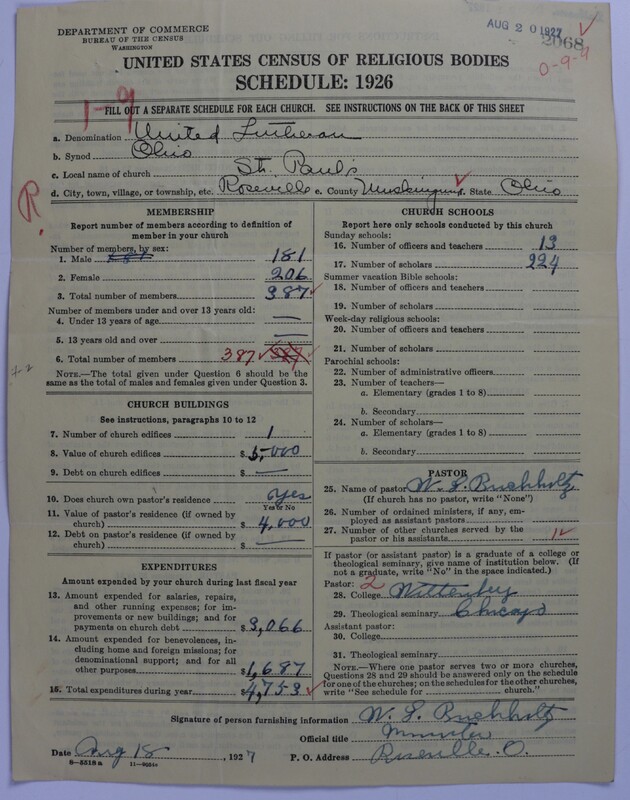 DEPARTMENT OF COMMERCE
BUREAU OF THE CENSUS
WASHINGTON
AUG 20 1927
2068
0-9-9
UNITED STATES CENSUS OF RELIGIOUS BODIES
SCHEDULE: 1926
1-9
FILL OUT A SEPARATE SCHEDULE FOR EACH CHURCH. SEE INSTRUCTIONS ON THE BACK OF THIS SHEET
a. Denomination United Lutheran
b. Synod Ohio
c. Local name of church St. Paul's
d. City, town, village, or township, etc. Roseville e. County Muskingum f. State Ohio
R.
MEMBERSHIP
Report number of members according to definition of
member in your church
Number of members, by sex:
1. Male 181
2. Female 206
3. Total number of members 387
Number of members under and over 13 years old:
4. Under 13 years of age —
5. 13 years old and over —
6. Total number of members 387 387
NOTE.—The total given under Question 6 should be
same as the total of males and females given under Question 3.
CHURCH BUILDINGS
See instructions, paragraphs 10 to 12
7. Number of church edifices 1
8. Value of church edifices $ 5,000
9. Debt on church edifices $ —
10. Does church own pastor's residence yes
Yes or No
11. Value of pastor's residence (if owned by
church) $ 4,000
12. Debt on pastor's residence (if owned by
church) $ —
EXPENDITURES
Amount expended by your church during last fiscal year
13. Amount expended for salaries, repairs,
and other running expenses; for im-
provements or new buildings; and for
payments on church debt $ 3,066
14. Amount expended for benevolences, in-
cluding home and foreign missions; for
denominational support; and for all
other purposes $ 1,687
15. Total expenditures during year $ 4,753
CHURCH SCHOOLS
Report here only schools conducted by this church
Sunday schools:
16. Number of officers and teachers 13
17. Number of scholars 224
Summer vacation Bible schools:
18. Number of officers and teachers
19. Number of scholars
Week-day religious schools:
20. Number of officers and teachers
21. Number of scholars
Parochial schools:
22. Number of administrative officers
23. Number of teachers—
a. Elementary (grades 1 to 8)
b. Secondary
24. Number of scholars—
a. Elementary (grades 1 to 8)
b. Secondary
PASTOR
25. Name of pastor W. L. Buchholtz
(If church has no pastor, write "None")
26. Number of ordained ministers, if any, em-
ployed as assistant pastors
27. Number of other churches served by the
pastor or his assistants
If pastor (or assistant pastor) is a graduate of a college or
theological seminary, give name of institution below. (If
not a graduate, write "No" in the space indicated.)
Pastor: 2
28. College Wittenberg
29. Theological seminary Chicago
Assistant pastor:
30. College
31. Theological seminary
NOTE.—Where one pastor serves two or more churches,
Questions 28 and 29 should be answered only on the schedule
for one of the churches; on the schedules for the other churches,
write "See schedule for church."
Signature of person furnishing information W. L. Buchholtz
Official title Minister
Date Aug 18, 1927 P. O. Address Roseville. O.
8-5518a